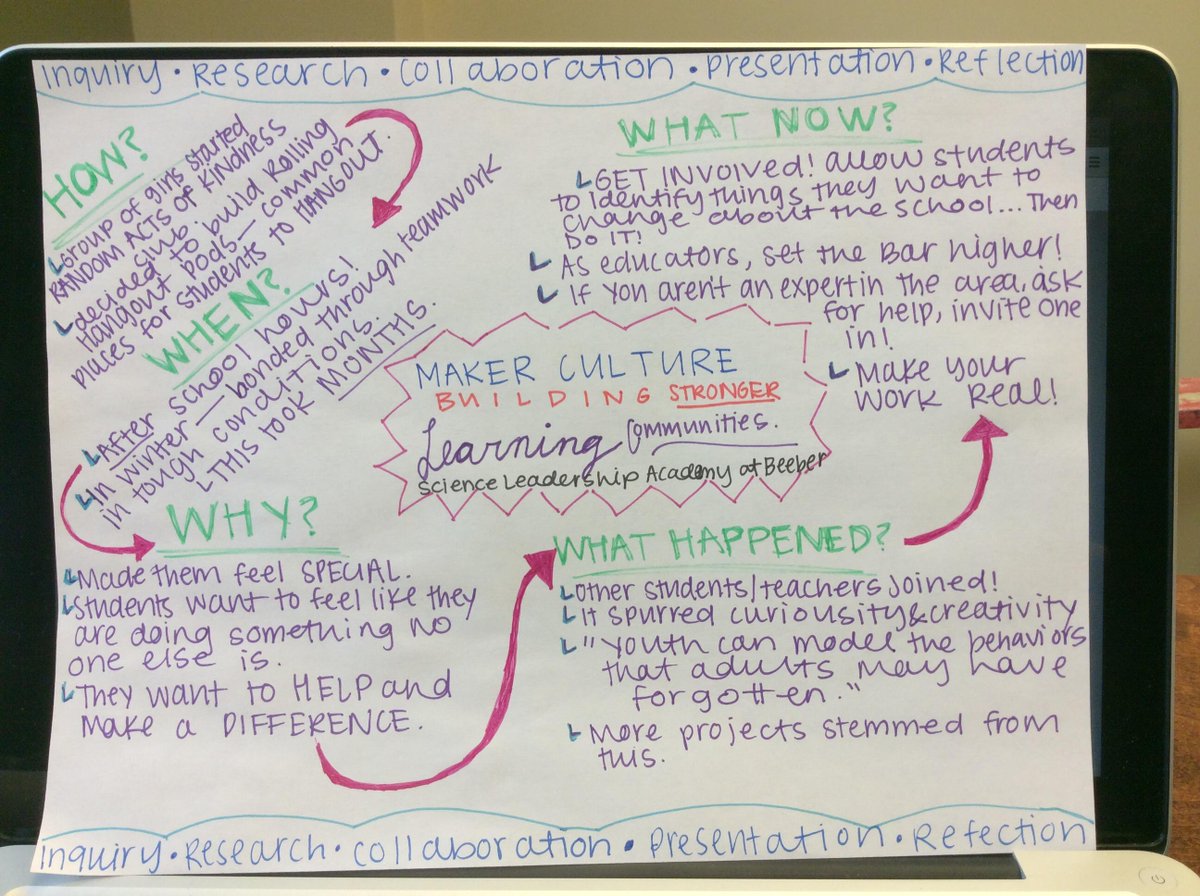 inquiry • Research • Collaboration • Presentation • Reflection
HOW?
Group of girls started
RANDOM ACTS of KINDNESS
club
decided to build Rolling
Hangout Pods — common
places for students to HANGOUT.
WHEN?
After school hours!
In winter — bonded through teamwork
in tough conditions.
THIS TOOK MONTHS.
WHY?
Made them feel SPECIAL.
Students want to feel like they
are doing something no
one else is.
They want to HELP and
make a DIFFERENCE.
MAKER CULTURE
BUILDING STRONGER
Learning Communities.
Science Leadership Academy at Beeber
WHAT HAPPENED?
Other students/teachers joined!
It spurred curiousity & creativity
"Youth can model the behaviors
that adults may have
forgotten."
More projects stemmed from
this.
WHAT NOW?
GET INVOLVED! allow students
to identify things they want to
change about the school... Then
DO IT!
As educators, set the Bar higher!
If you aren't an expert in the area, ask
for help, invite one
in!
Make your
work Real!
inquiry • Research • Collaboration • Presentation • Refection